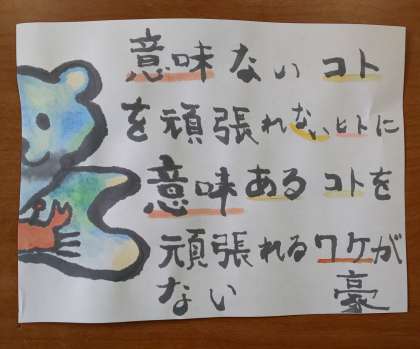 意味ないコト
を頑張れないヒトに
意味あるコトを
頑張れるワケが
ない 豪